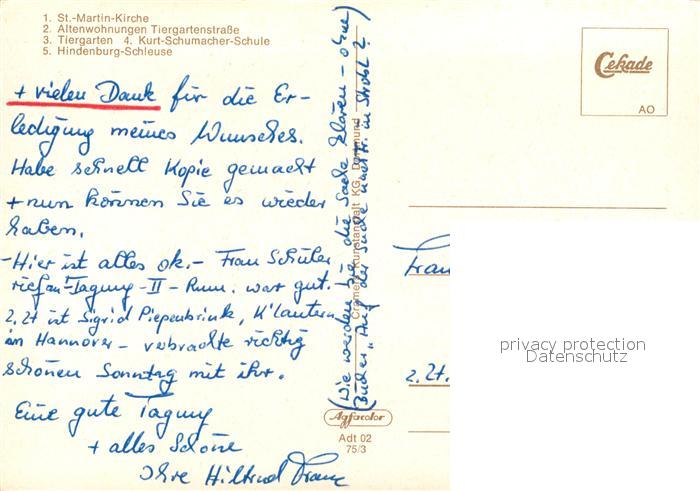 1. St.-Martin-Kirche
2. Altenwohnungen Tiergartenstraße
3. Tiergarten 4. Kurt-Schumacher-Schule
5. Hindenburg-Schleuse
+ vielen Dank für die Er-
ledigung meines Wunsches.
Habe schnell Kopie gemacht
+ nun können Sie es wieder
haben.
- Hier ist alles ok. - Frau Schüler
Tagung - II - war gut.
z. Zt ist Sigrid Piepenbrink, K'lautern
in Hannover - verbrachte richtig
schönen Sonntag mit ihr.
Eine gute Tagung
+ alles Schöne
Ihre Hiltrud
(Wie werden Sie die Sache klären - ohne
Bücher "Auf der Suche nach
Cramers Kunstanstalt KG, Dortmund
Agfacolor
Adt 02
75/3
Cekade
AO
Frau
z. Zt.
privacy protection
Datenschutz